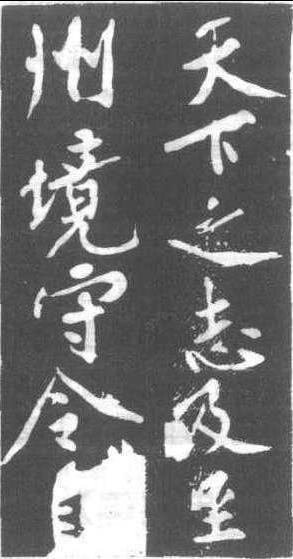 天下之志及至
州境守令自